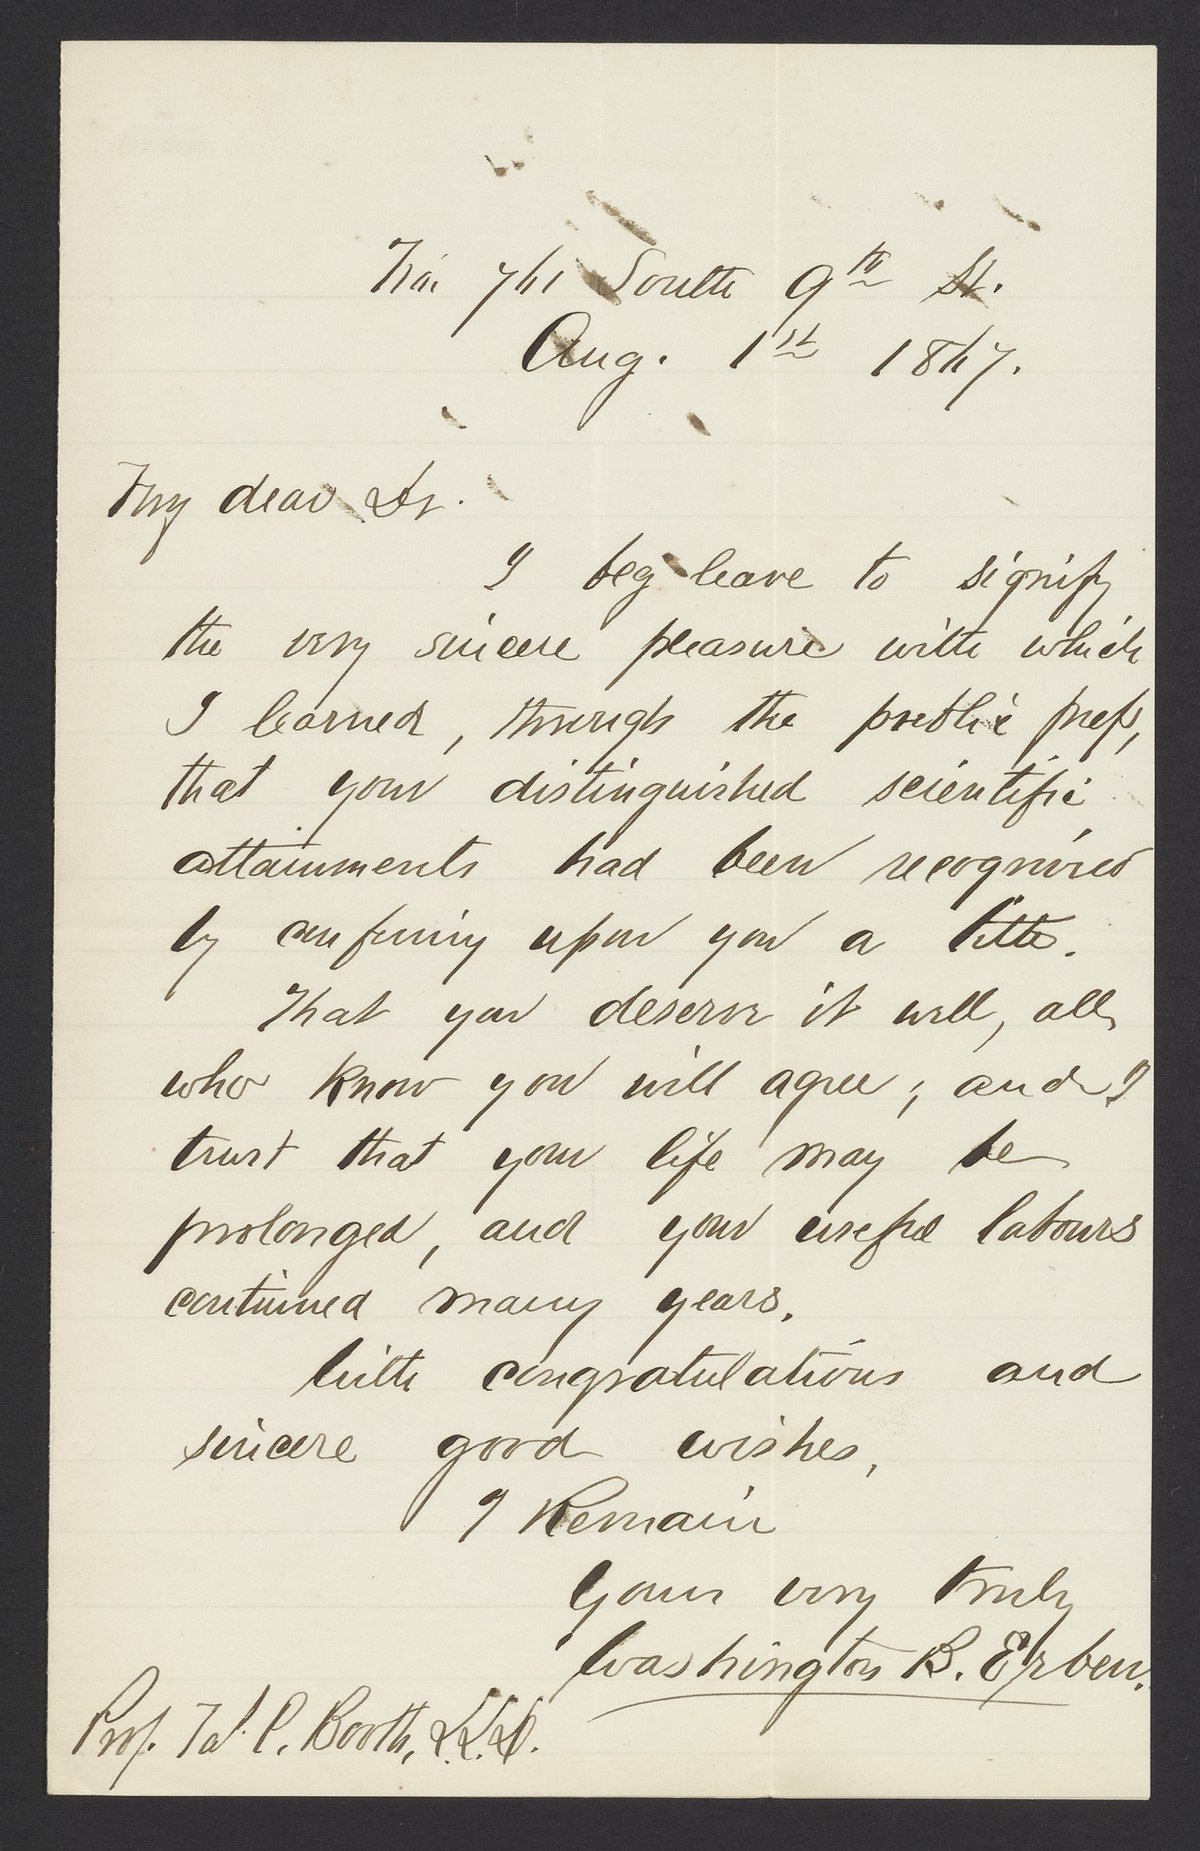 No. 761 South 9th St.
Aug. 1st 1867.
My dear Dr.
I beg leave to signify
the very sincere pleasure with which
I learned, through the public press,
that your distinguished scientific
attainments had been recognized
by conferring upon you a title.
That you deserve it well, all
who know you will agree; and I
trust that your life may be
prolonged, and your useful labours
continued many years.
With congratulations and
sincere good wishes,
I Remain
Yours very truly
Washington B. Erben.
Prof. Jas. C. Booth, L.L.D.